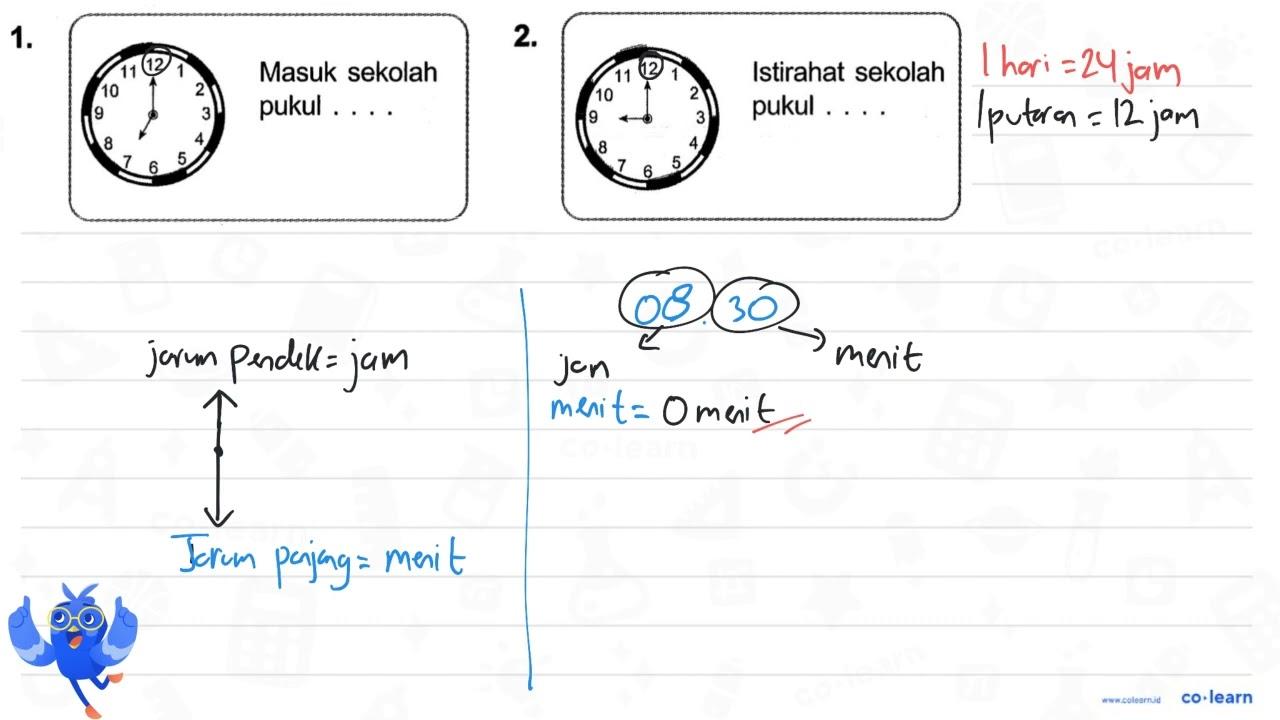 1.
12
1
2
3
4
5
6
7
8
9
10
11
Masuk sekolah
pukul . . . .
2.
12
1
2
3
4
5
6
7
8
9
10
11
Istirahat sekolah
pukul . . . .
1 hari = 24 jam
1 putaran = 12 jam
08.30
jam
menit
menit = 0 menit
jarum pendek = jam
Jarum panjang = menit
co·learn
co·learn
co·learn
co·learn
www.colearn.id
co·learn